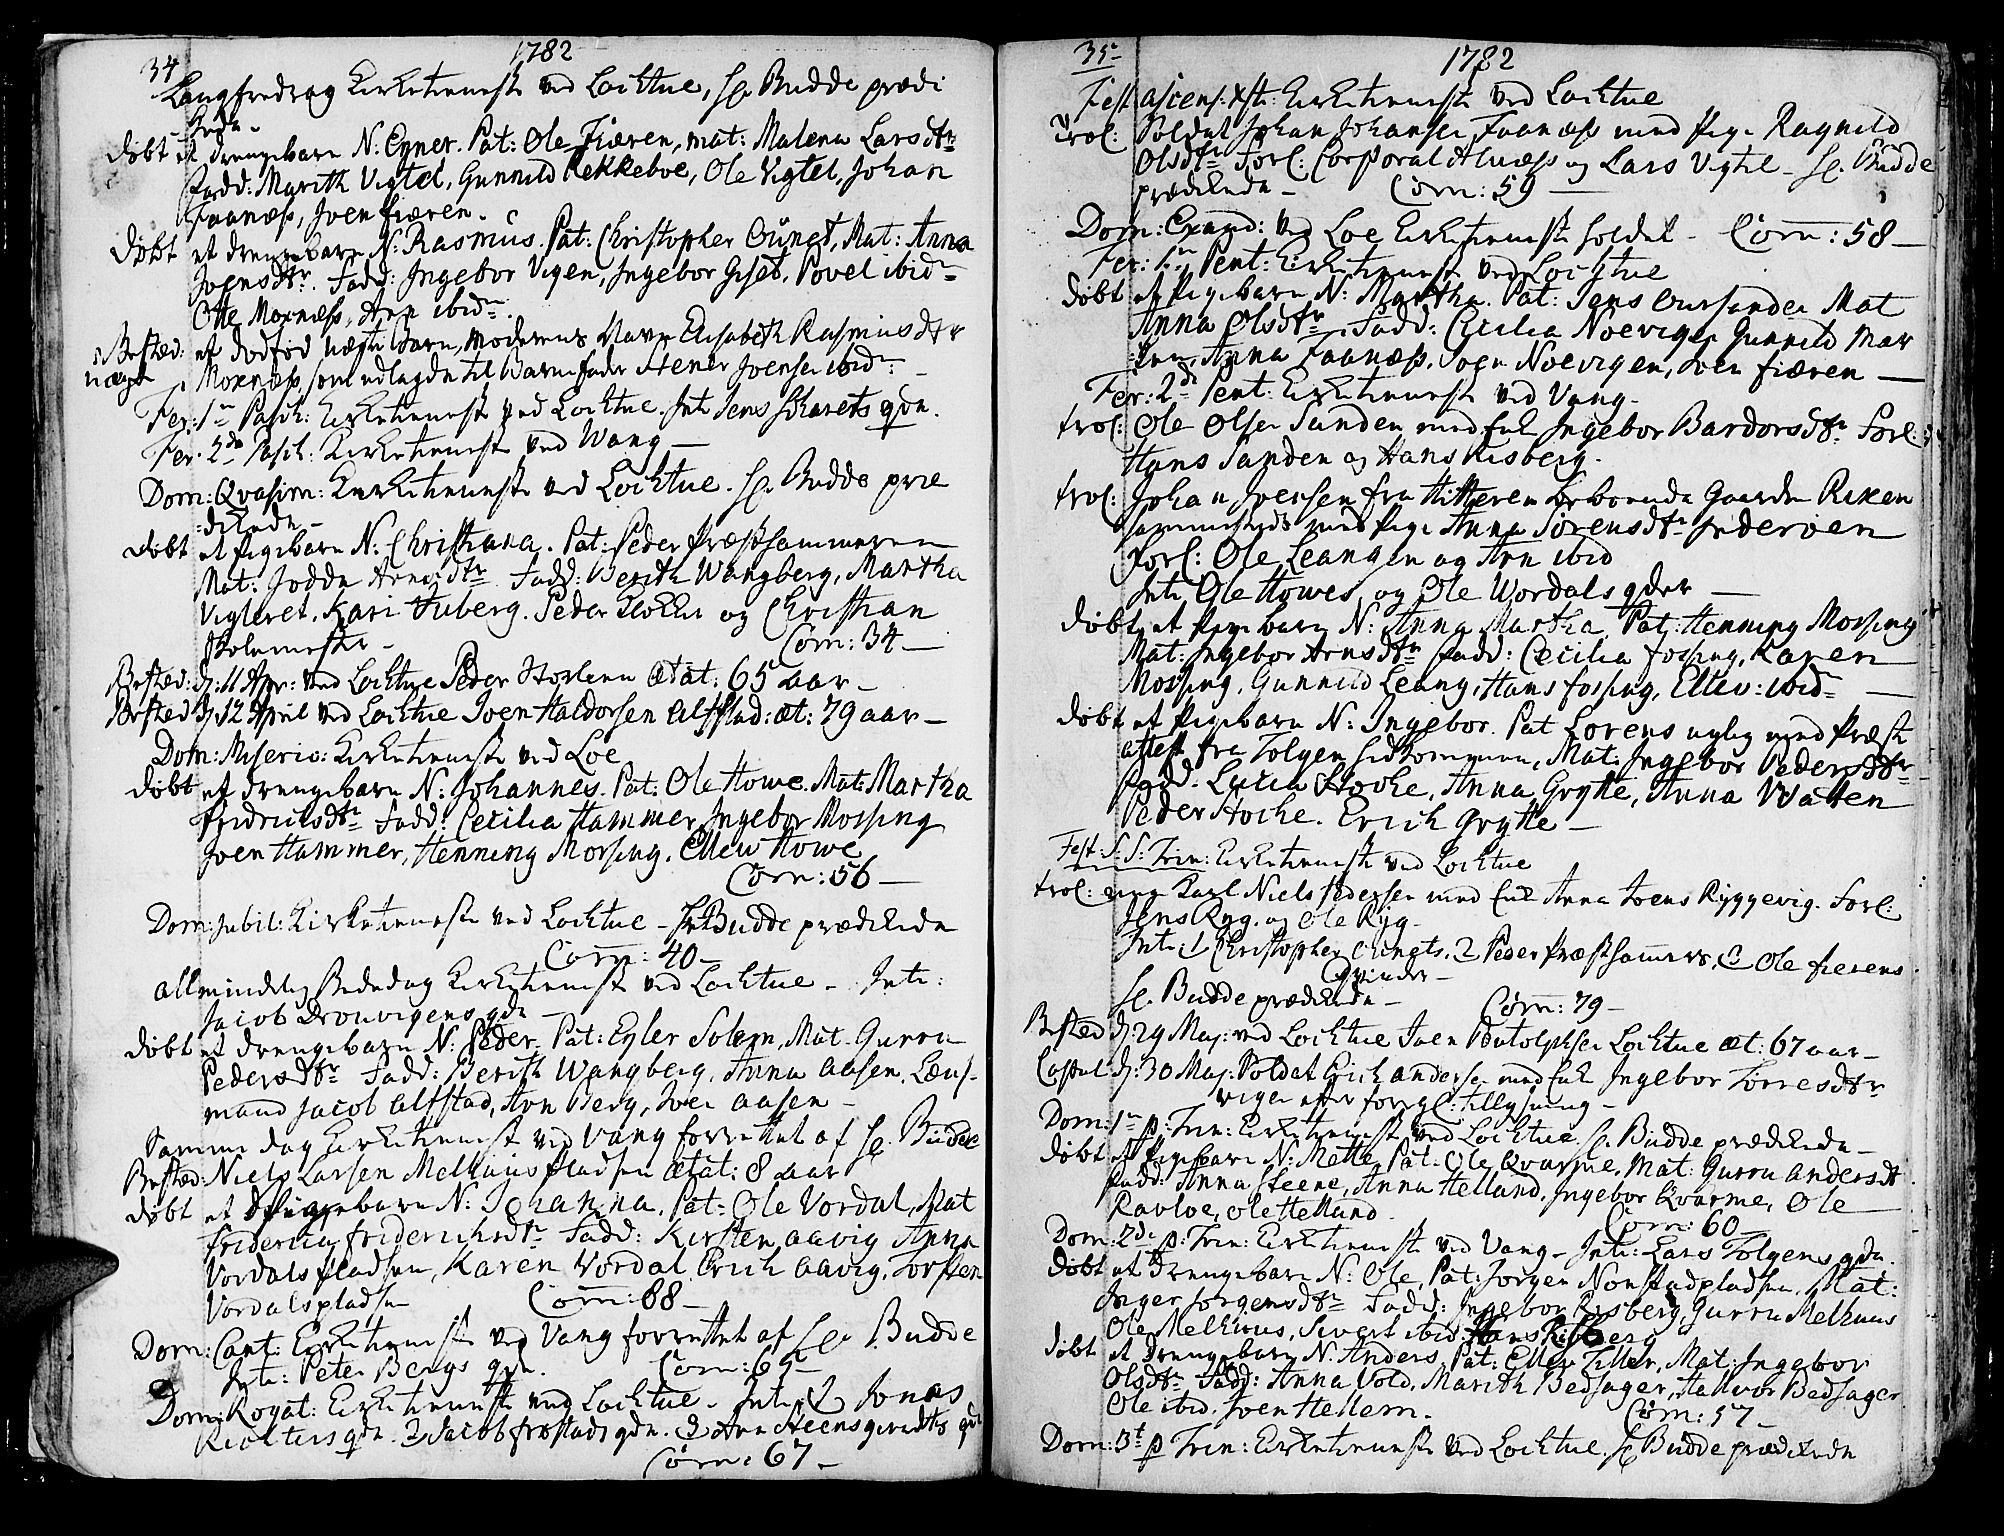 34
1782
Langfredag Kirketieneste ved Lochtue, Hr. Budde prædi
kede.
døbt et drengebarn N: Eyner. Pat: Ole Fiæren, mat: Malena Larsdtr
Fadd: Marith Vigtel, Gunnild Rekkeboe, Ole Vigtel, Johan
Faanæss, Joen fiæren.
døbt et drengebarn N: Rasmus. Pat: Christopher Mat: Anna
Joensdtr. Fadd: Ingebor Vigen, Ingebor Giset, Povel ibid
Otte Moxnæss, Arn ibid.
Bested: et dødfød uægte Barn, moderens Navn Elisabeth Rasmusdtr
uægte Moxnæss, som udlagde til Barnefader Stener Joensen ibid:
Fer: 1 Pasch: Kirketieneste ved Lochtue. Int: Jens qde.
Fer: 2d Pasch: Kirketieneste ved Wang
Dom: Qvasim: Kirketieneste ved Lochtue. Hr. Budde præ
dikede
døbt et Pigebarn N: Christiana. Pat: Peder Præsthammeren
Mat: Jodda Arnesdtr Fadd: Berith Wangberg, Martha
Vigleret, Kari Tuberg. Peder Klokker og Christian
Skolemester. Com: 34
Bested: d: 11 Apr: ved Lochtue Peder Storlenn ætat: 65 aar
Bested d: 12 April ved Lochtue Joen Haldorsen Alfstad: æt: 79 aar
Dom: Miseric: Kirketieneste ved Loe
døbt et drengebarn N: Johannes. Pat: Ole Howe. Mat: Martha
Fridrichsdtr Fadd: Cecilia Hammer, Ingebor Mossing
Joen Hammer, Henning Morsing. Ellew Howe
Com: 56
Dom: Jubil: Kirketieneste ved Lochtue Hr Budde prædikede
Com: 40
allmindelig Bededag Kirketieneste ved Lochtue - Int:
Jacob Drouvigens qde
døbt et drengebarn N: Peder. Pat: Eyler Solem, Mat. Gurru
Pedersdtr Fadd: Berith Wangberg, Anna Aasen, Læns-
mand Jacob Alfstad, Arn Berg, Iver Aasen
Samme dag Kirketieneste ved Vang forrettet af Hr. Budde
Bested: Niels Larsen Melhuus pladsen ætat: 8 aar
døbt et Pigebarn N: Johanna. Pat: Ole Vordal, Mat
Friderica friderichsdtr Fadd: Kirsten aavig Anna
Vordals pladsen, Karen Vordal, Erich Aavig, Torsten
Vordalspladsen Com: 88
Dom: Cant: Kirketieneste ved Vang forrettet af Hr. Budde
Int: Peter Bergs qde. Com: 65
Dom: Rogat: Kirketieneste ved Lochtue. Int: 1 Jonas
qde. 2 Jacob frostads qde. 3 Arn qde
Com: 67
35
1782
Fest ascens: Xsti: Kirketieneste ved Lochtue
Trol: Soldat Johan Johansen Faanæss med Pige Ragnild
Olsdtr Forl: Corporal Alnæss og Lars Vigtel - Hr. Budde
prædikede Com: 59
Dom: Exaud: ved Loe Kirketieneste holdet. Com: 58
Fer: 1 Pent: Kirketieneste ved Lochtue
døbt et Pigebarn N: Martha. Pat: Jens Mat
Anna Olsdtr Fadd: Cecilia Noevigen Gunnild Mar
Anna Faanæss, Joen Noevigen, Iver fiæren
Fer: 2d Pent: Kirketieneste ved Vang
trol: Ole Olsen Sanden med Enke Ingebor Bardorsdtr Forl:
Hans Sanden og Hans Risberg.
trol: Johan Joensen fra Hitteren beboende Gaarden Rixen
sammesteds med Pige Anna Sørensdtr Inderøen
Forl: Ole Leangen og Arn ibid
Int: Ole Howes, og Ole Wordals qder
døbt et Pigebarn N: Anna Martha, Pat: Henning Morsing
Mat: Ingebor Arnsdtr Fadd: Cecilia fossing, Karen
Mossing, Gunnild Leang, Hans fossing, Ellev: ibid
døbt et Pigebarn N: Ingebor. Pat Lorens nylig med Præste
attest fra Tolgen hidkommen, Mat: Ingebor Pedersdtr
Fadd: Lucia Hocke, Anna Grytte, Anna Watten
Peder Hocke. Erich Grytte
Fest: S: S: Trin: Kirketieneste ved Lochtue
trol: ung Karl Niels Pedersen med Enke Anna Joens Ryggevig. Forl:
Jens Ryg. og Ole Ryg.
Int: 1 Christopher 2 Peder Præsthammers, 3 Ole fierens
Qvinder
Hr. Budde prædikede Com: 79
Bested d: 29 Maj: ved Lochtue Joen Lochtue æt: 67 aar
Copul d: 30 Maj: Soldat Erich Andersen med Enke Ingebor Torresdtr
Vigen efter foregl: tillysning
Dom: 1 p: Trin: Kirketieneste ved Lochtue Hr. Budde prædikede
døbt et Pigebarn N: Mette, Pat: Ole Qvarme, Mat: Gurru Andersdt
Fadd: Anna Steene, Anna Helland, Ingebor Qvarme, Ole
Ravloe, Ole Helland. Com: 60
Dom: 2d p: Trin: Kirketieneste ved Vang - Int: Lars Tolgens qde.
døbt et drengebarn N: Ole, Pat: Jørgen Nonstadpladsen, Mat:
Inger Jørgensdtr Fadd: Ingebor Risberg Gurru Melhuus
Ole Melhuus, Sivert ibid Hans Risberg
døbt et drengebarn N: Anders, Pat: Eller Mat: Ingebor
Olsdtr Fadd: Anna Vold, Marith Bedsager, Halvor Bedsager
Ole ibid. Joen Hellem. Com: 57
Dom: 3t p Trin: Kirketieneste ved Lochtue. Hr Budde prædikede